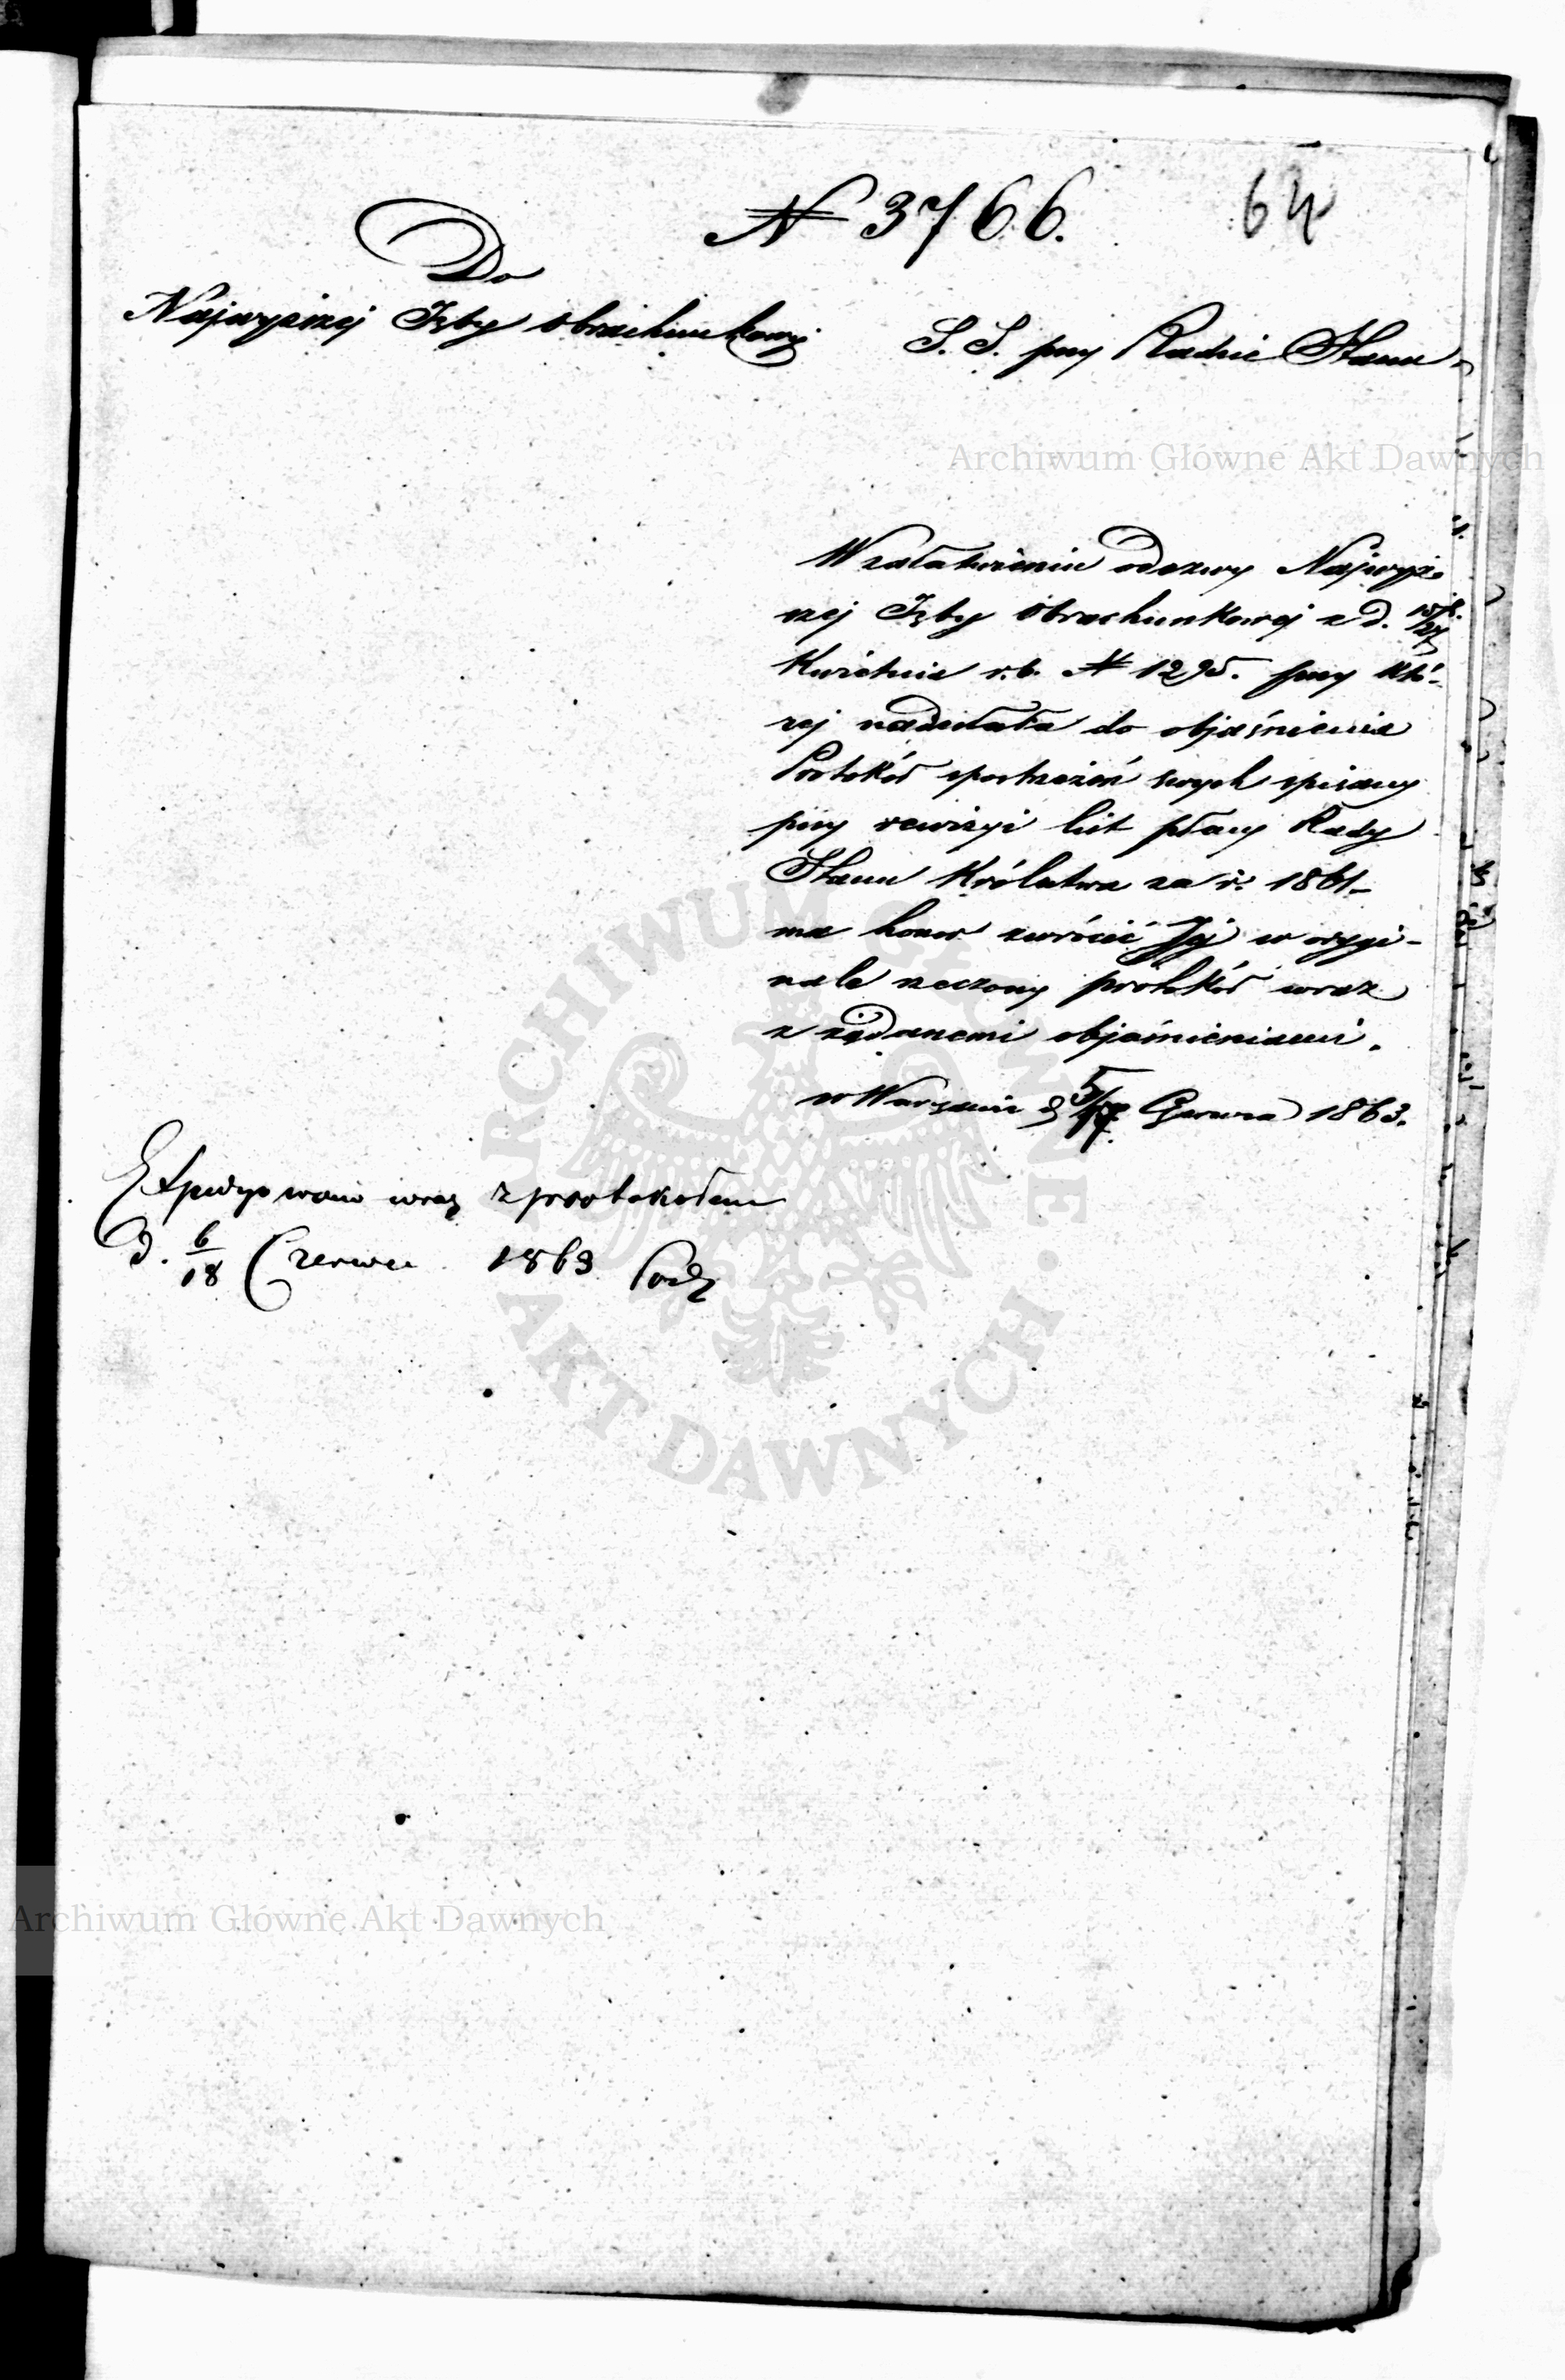 N 3766.
64
Do
Najwyższej Izby Obrachunkowej
S. S. przy Radzie Stanu
Archiwum Główne Akt Dawnych
W załatwieniu odezwy Najwyż-
szej Izby Obrachunkowej z d. 15/27
Kwietnia r.b. N 1295. przy któ-
rej nadesłała do objaśnienia
Protokół spostrzeżeń swych spisany
przy rewizyi list płacy Rady
Stanu Królestwa za r. 1861-
ma honor zwrócić Jej w orygi-
nale rzeczony protokół wraz
z żądanemi objaśnieniami.
w Warszawie d 5/17 Czerwca 1863.
Expedyowano wraz z protokołem
d. 6/18 Czerwca 1863
ARCHIWUM GŁÓWNE AKT DAWNYCH
Archiwum Główne Akt Dawnych